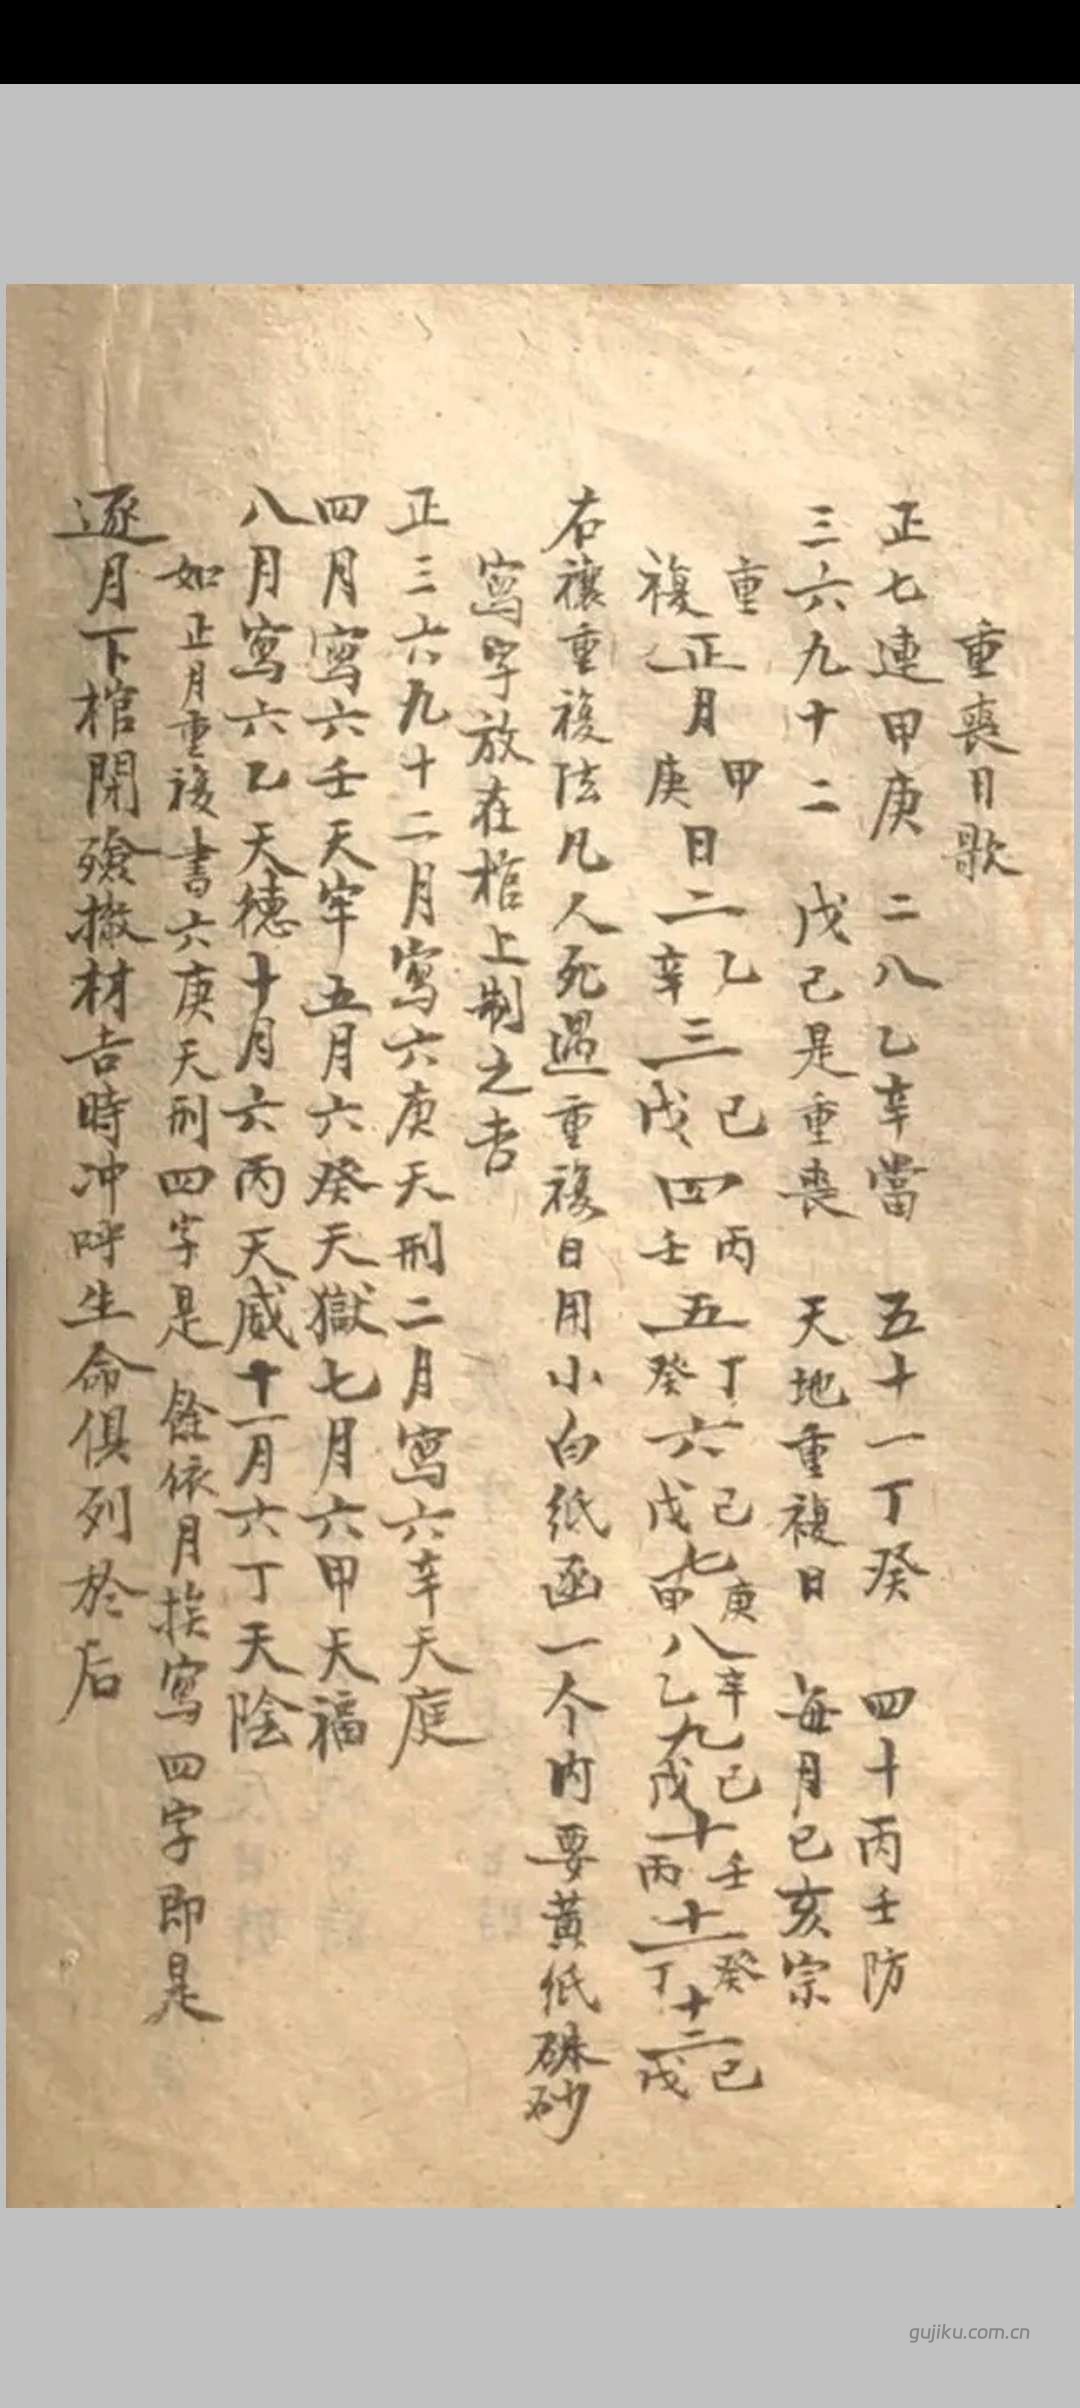 重喪日歌
正七連甲庚 二八乙辛當 五十一丁癸 四十丙壬防
三六九十二 戊己是重喪 天地重複日 每月巳亥宗
重複正月甲庚日二乙辛三己戊四丙壬五丁癸六己戊七庚甲八辛乙九己戊十壬丙十一癸丁十二己戊
右禳重複法凡人死遇重複日用小白紙函一个内要黄紙硃砂
寫字放在棺上制之吉
正三六九十二月寫六庚天刑二月寫六辛天庭
四月寫六壬天牢五月六癸天獄七月六甲天福
八月寫六乙天德十月六丙天威十一月六丁天陰
如正月重複書六庚天刑四字是 餘依月挨寫四字即是
逐月下棺閉殮撤材吉時冲呼生命俱列於后
gujiku.com.cn